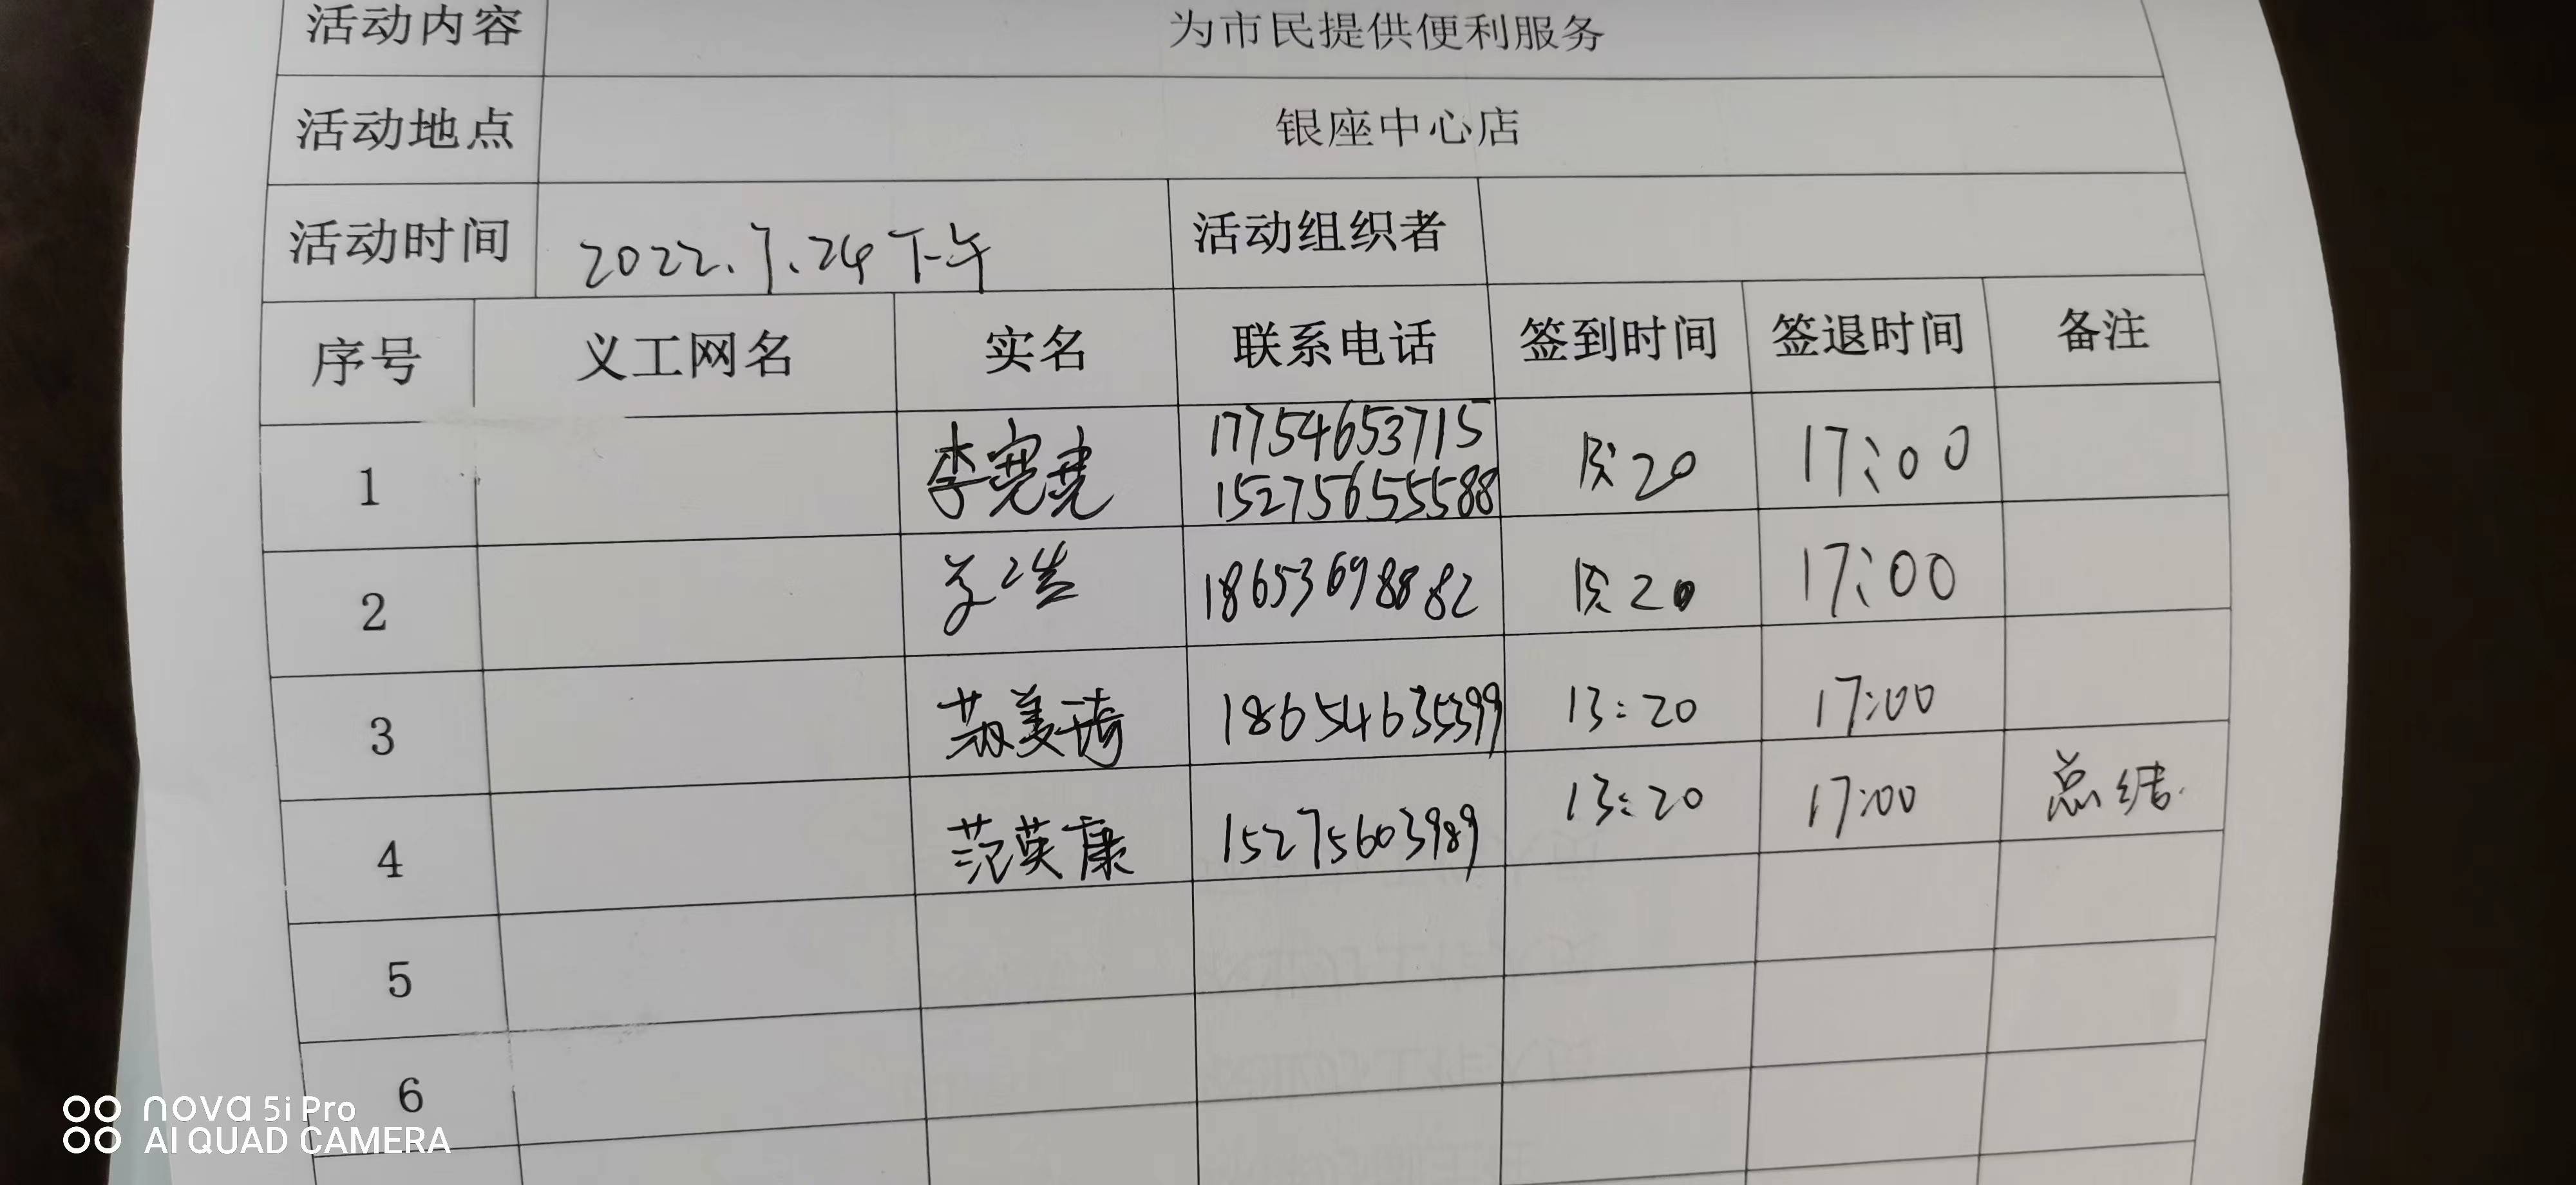 活动内容 为市民提供便利服务
活动地点 银座中心店
活动时间 2022.7.24下午 活动组织者
序号 义工网名 实名 联系电话 签到时间 签退时间 备注
17754653715
1 李 15275655588 13:20 17:00
2 孟浩 18653698882 13:20 17:00
3 美琦 18654635399 13:20 17:00
4 范英康 15275603989 13:20 17:00 总结.
5
6
nova 5i Pro
AI QUAD CAMERA